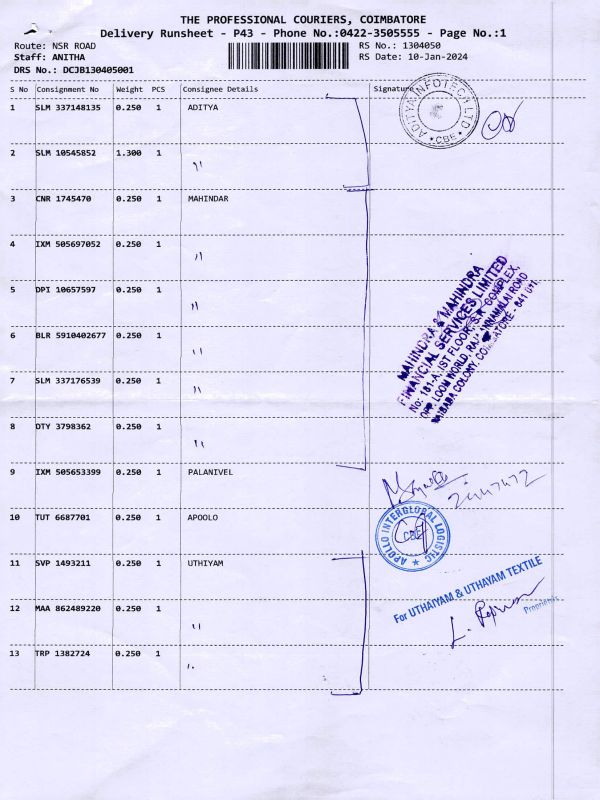 THE PROFESSIONAL COURIERS, COIMBATORE
Delivery Runsheet - P43 - Phone No.:0422-3505555 - Page No.:1
Route: NSR ROAD
RS No.: 1304050
Staff: ANITHA
RS Date: 10-Jan-2024
DRS No.: DCJB130405001
S No Consignment No Weight PCS Consignee Details Signature
1 SLM 337148135 0.250 1 ADITYA
ADITYA INFOTECH LTD
* CBE *
2 SLM 10545852 1.300 1 "
3 CNR 1745470 0.250 1 MAHINDAR
4 IXM 505697052 0.250 1 "
5 DPI 10657597 0.250 1 "
6 BLR 5910402677 0.250 1 "
7 SLM 337176539 0.250 1 "
8 OTY 3798362 0.250 1 "
MAHINDRA & MAHINDRA
FINANCIAL SERVICES LIMITED
No: 181-A, IST FLOOR, S.R. COMPLEX,
OPP. LOOM WORLD, ANNAMALAI ROAD
SAIBABA COLONY, COIMBATORE - 641 011.
9 IXM 505653399 0.250 1 PALANIVEL
10 TUT 6687701 0.250 1 APOOLO
APOLLO INTERGLOBAL LOGISTIC
CBE
11 SVP 1493211 0.250 1 UTHIYAM
For UTHAIYAM & UTHAYAM TEXTILE
Proprietrix
12 MAA 862489220 0.250 1 "
13 TRP 1382724 0.250 1 "